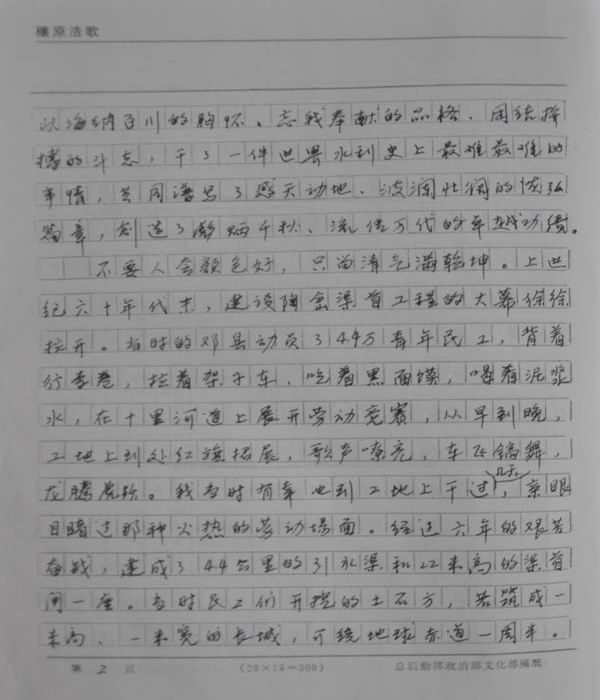 穰原浩歌
以海纳百川的胸怀、忘我奉献的品格、团结拼
搏的斗志，干了一件世界水利史上最难最难的
事情，共同谱写了感天动地、波澜壮阔的恢弘
篇章，创造了彪炳千秋、流传万代的卓越功绩。
不要人夸颜色好，只留清气满乾坤。上世
纪六十年代末，建设陶岔渠首工程的大幕徐徐
拉开。当时的邓县动员了4.4万青年民工，背着
行李卷，拉着架子车，吃着黑面馍，喝着泥浆
水，在十里河道上展开劳动竞赛，从早到晚，
工地上到处红旗招展，歌声嘹亮，车飞镐舞，
龙腾虎跃。我当时有幸也到工地上干过几天，亲眼
目睹过那种火热的劳动场面。经过六年的艰苦
奋战，建成了4.4公里的引水渠和22米高的渠首
闸一座。当时民工们开挖的土石方，若筑成一
米高、一米宽的长城，可绕地球赤道一周半。
第 2 页 (20×15=300) 总后勤部政治部文化部稿纸